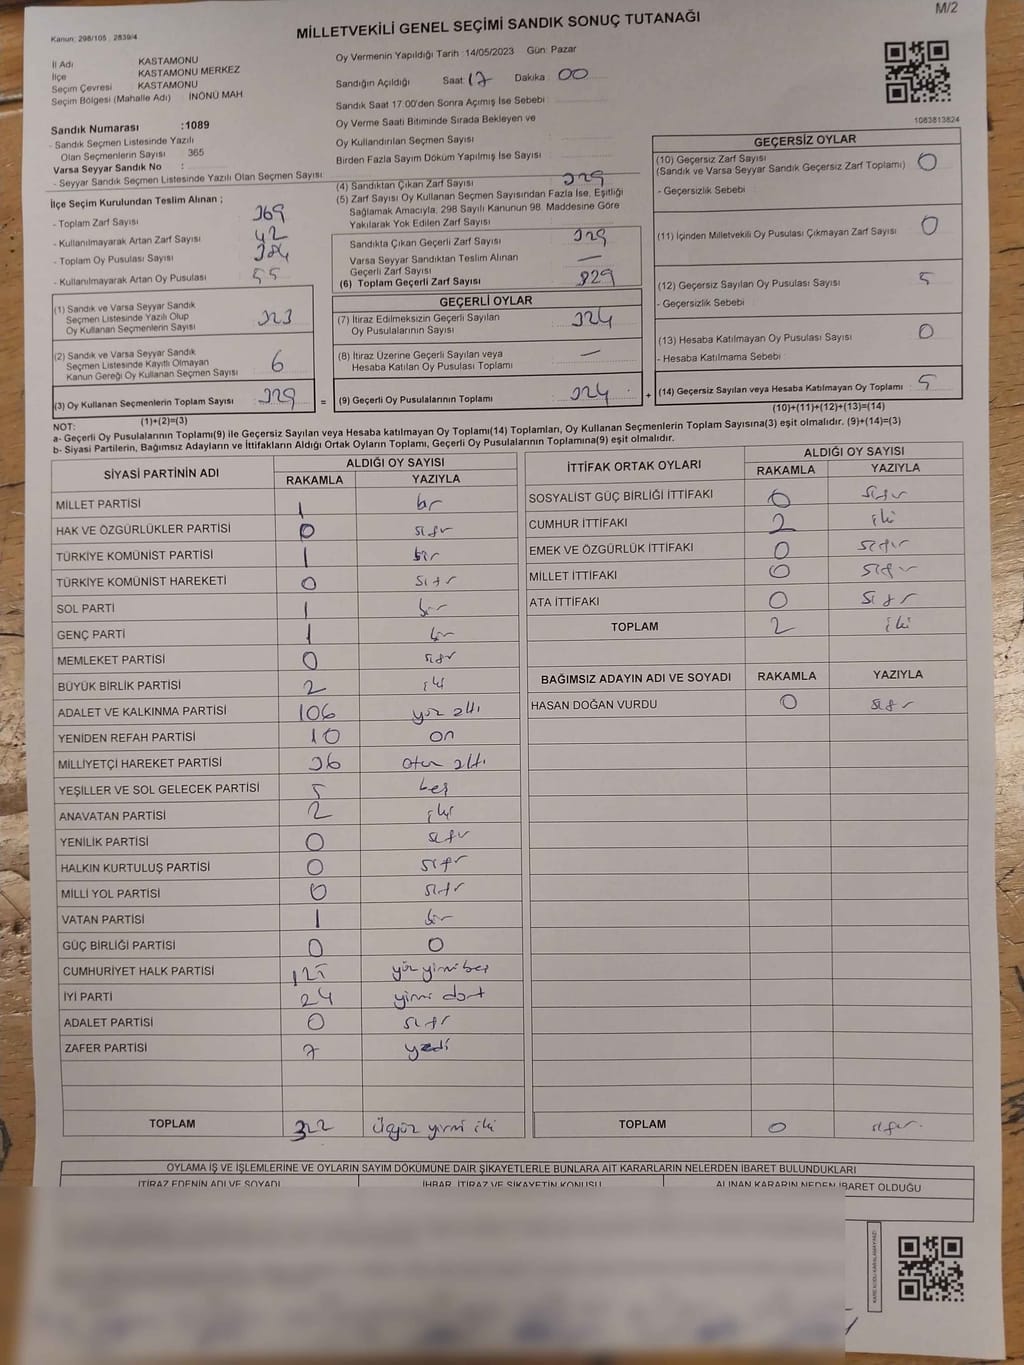 M/2
Kanun: 298/105 , 2839/4
MİLLETVEKİLİ GENEL SEÇİMİ SANDIK SONUÇ TUTANAĞI
İl Adı KASTAMONU
İlçe KASTAMONU MERKEZ
Seçim Çevresi KASTAMONU
Seçim Bölgesi (Mahalle Adı) : İNÖNÜ MAH
Sandık Numarası :1089
- Sandık Seçmen Listesinde Yazılı
Olan Seçmenlerin Sayısı 365
Varsa Seyyar Sandık No :
- Seyyar Sandık Seçmen Listesinde Yazılı Olan Seçmen Sayısı
Oy Vermenin Yapıldığı Tarih : 14/05/2023 Gün: Pazar
Sandığın Açıldığı Saat: 17 Dakika : 00
Sandık Saat 17:00'den Sonra Açımış İse Sebebi :
Oy Verme Saati Bitiminde Sırada Bekleyen ve
Oy Kullandırılan Seçmen Sayısı
Birden Fazla Sayım Döküm Yapılmış İse Sayısı
1083813824
İlçe Seçim Kurulundan Teslim Alınan ;
- Toplam Zarf Sayısı 369
- Kullanılmayarak Artan Zarf Sayısı 42
- Toplam Oy Pusulası Sayısı 384
- Kullanılmayarak Artan Oy Pusulası 55
(1) Sandık ve Varsa Seyyar Sandık
Seçmen Listesinde Yazılı Olup
Oy Kullanan Seçmenlerin Sayısı 323
(2) Sandık ve Varsa Seyyar Sandık
Seçmen Listesinde Kayıtlı Olmayan
Kanun Gereği Oy Kullanan Seçmen Sayısı 6
(3) Oy Kullanan Seçmenlerin Toplam Sayısı 329 =
(1)+(2)=(3)
(4) Sandıktan Çıkan Zarf Sayısı 329
(5) Zarf Sayısı Oy Kullanan Seçmen Sayısından Fazla İse, Eşitliği
Sağlamak Amacıyla, 298 Sayılı Kanunun 98. Maddesine Göre
Yakılarak Yok Edilen Zarf Sayısı
Sandıkta Çıkan Geçerli Zarf Sayısı 329
Varsa Seyyar Sandıktan Teslim Alınan
Geçerli Zarf Sayısı —
(6) Toplam Geçerli Zarf Sayısı 329
GEÇERLİ OYLAR
(7) İtiraz Edilmeksizin Geçerli Sayılan
Oy Pusulalarının Sayısı 324
(8) İtiraz Üzerine Geçerli Sayılan veya
Hesaba Katılan Oy Pusulası Toplamı —
(9) Geçerli Oy Pusulalarının Toplamı 324 +
GEÇERSİZ OYLAR
(10) Geçersiz Zarf Sayısı
(Sandık ve Varsa Seyyar Sandık Geçersiz Zarf Toplamı) 0
- Geçersizlik Sebebi
(11) İçinden Milletvekili Oy Pusulası Çıkmayan Zarf Sayısı 0
(12) Geçersiz Sayılan Oy Pusulası Sayısı 5
- Geçersizlik Sebebi
(13) Hesaba Katılmayan Oy Pusulası Sayısı 0
- Hesaba Katılmama Sebebi
(14) Geçersiz Sayılan veya Hesaba Katılmayan Oy Toplamı : 5
(10)+(11)+(12)+(13)=(14)
NOT:
a- Geçerli Oy Pusulalarının Toplamı(9) ile Geçersiz Sayılan veya Hesaba katılmayan Oy Toplamı(14) Toplamları, Oy Kullanan Seçmenlerin Toplam Sayısına(3) eşit olmalıdır. (9)+(14)=(3)
b- Siyasi Partilerin, Bağımsız Adayların ve İttifakların Aldığı Ortak Oyların Toplamı, Geçerli Oy Pusulalarının Toplamına(9) eşit olmalıdır.
SİYASİ PARTİNİN ADI ALDIĞI OY SAYISI
RAKAMLA YAZIYLA
MİLLET PARTİSİ 1 bir
HAK VE ÖZGÜRLÜKLER PARTİSİ 0 sıfır
TÜRKİYE KOMÜNİST PARTİSİ 1 bir
TÜRKİYE KOMÜNİST HAREKETİ 0 sıfır
SOL PARTİ 1 bir
GENÇ PARTİ 1 bir
MEMLEKET PARTİSİ 0 sıfır
BÜYÜK BİRLİK PARTİSİ 2 iki
ADALET VE KALKINMA PARTİSİ 106 yüz altı
YENİDEN REFAH PARTİSİ 10 on
MİLLİYETÇİ HAREKET PARTİSİ 36 otuz altı
YEŞİLLER VE SOL GELECEK PARTİSİ 5 beş
ANAVATAN PARTİSİ 2 iki
YENİLİK PARTİSİ 0 sıfır
HALKIN KURTULUŞ PARTİSİ 0 sıfır
MİLLİ YOL PARTİSİ 0 sıfır
VATAN PARTİSİ 1 bir
GÜÇ BİRLİĞİ PARTİSİ 0 0
CUMHURİYET HALK PARTİSİ 125 yüz yirmi beş
İYİ PARTİ 24 yirmi dört
ADALET PARTİSİ 0 sıfır
ZAFER PARTİSİ 7 yedi
TOPLAM 322 üçyüz yirmi iki
İTTİFAK ORTAK OYLARI ALDIĞI OY SAYISI
RAKAMLA YAZIYLA
SOSYALİST GÜÇ BİRLİĞİ İTTİFAKI 0 sıfır
CUMHUR İTTİFAKI 2 iki
EMEK VE ÖZGÜRLÜK İTTİFAKI 0 sıfır
MİLLET İTTİFAKI 0 sıfır
ATA İTTİFAKI 0 sıfır
TOPLAM 2 iki
BAĞIMSIZ ADAYIN ADI VE SOYADI RAKAMLA YAZIYLA
HASAN DOĞAN VURDU 0 sıfır
TOPLAM 0 sıfır
OYLAMA İŞ VE İŞLEMLERİNE VE OYLARIN SAYIM DÖKÜMÜNE DAİR ŞİKAYETLERLE BUNLARA AİT KARARLARIN NELERDEN İBARET BULUNDUKLARI
İTİRAZ EDENİN ADI VE SOYADI İHBAR, İTİRAZ VE ŞİKAYETİN KONUSU ALINAN KARARIN NEDEN İBARET OLDUĞU